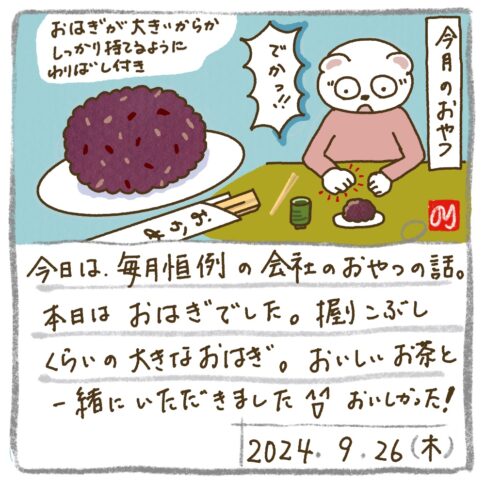 今月のおやつ
でかっ!!
おはぎが大きいからか
しっかり持てるように
わりばし付き
おてもと
今日は、毎月恒例の会社のおやつの話。
本日はおはぎでした。握りこぶし
くらいの大きなおはぎ。おいしいお茶と
一緒にいただきました おいしかった!
2024.9.26(木)